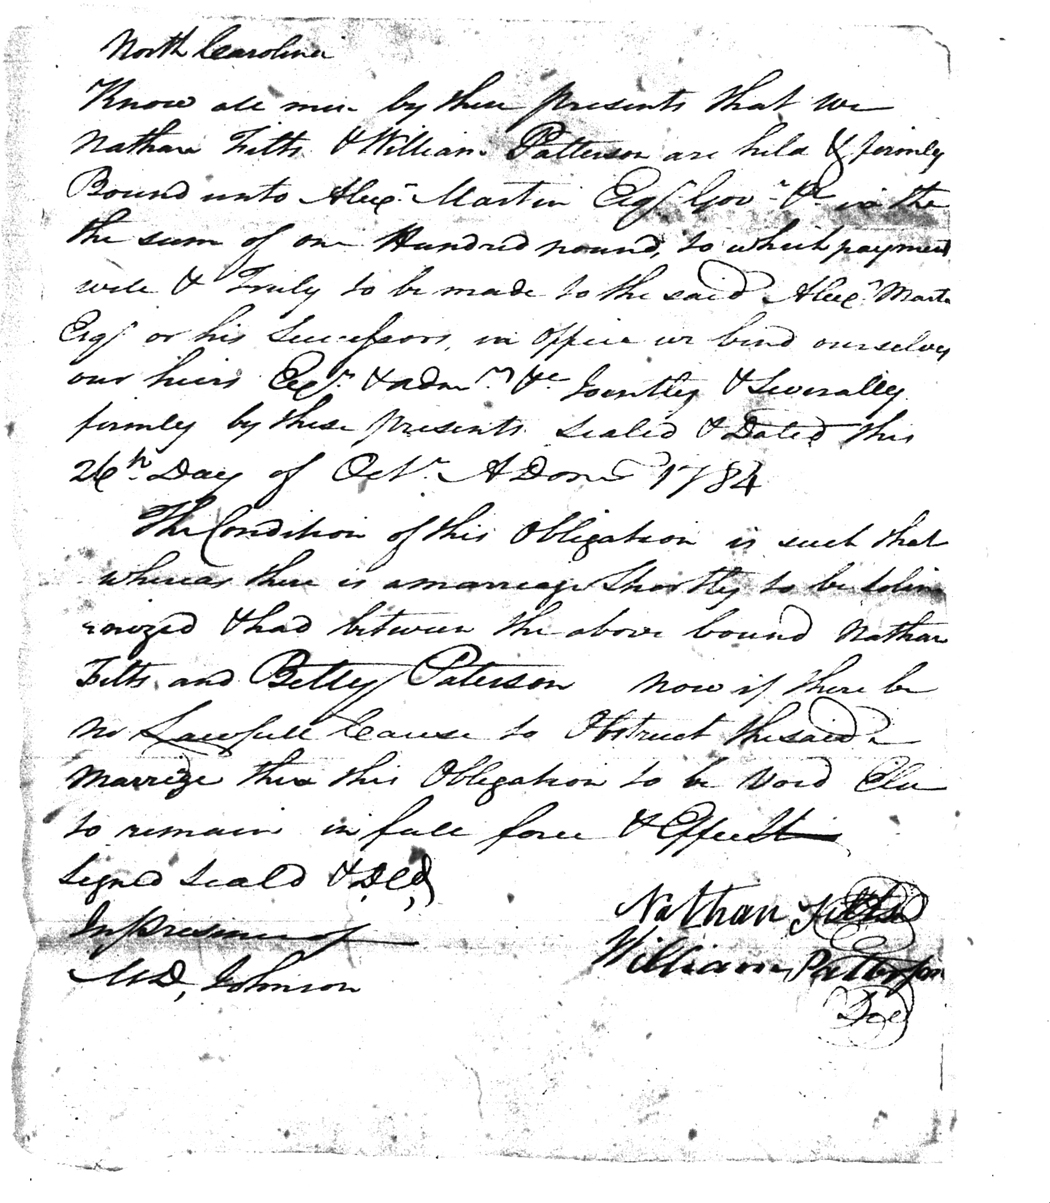 North Carolina
Know all men by these presents that we
Nathan Fitts & William Patterson are held & firmly
Bound unto Alexr Martin Esqr Govr &c in the
the sum of one Hundred pound, to which payment
well & Truly to be made to the said Alexr Martin
Esqr or his Successors, in office we bind ourselves
our heirs Exrs & admrs &c Jointly & Severally
firmly by these presents Sealed & Dated this
26th Day of Octr A Dom 1784
The Condition of this Obligation is such that
whereas there is a marreage Shortly to be Solem
nized & had between the above bound Nathan
Fitts and Betty Paterson now if there be
no Lawfull Cause to Obstruct the said
Marrige then this Obligation to be Void Else
to remain in full force & Effect
Signed Seald & DLd
In presence of
M D, Johnson
Nathan Fitts
William Patterson